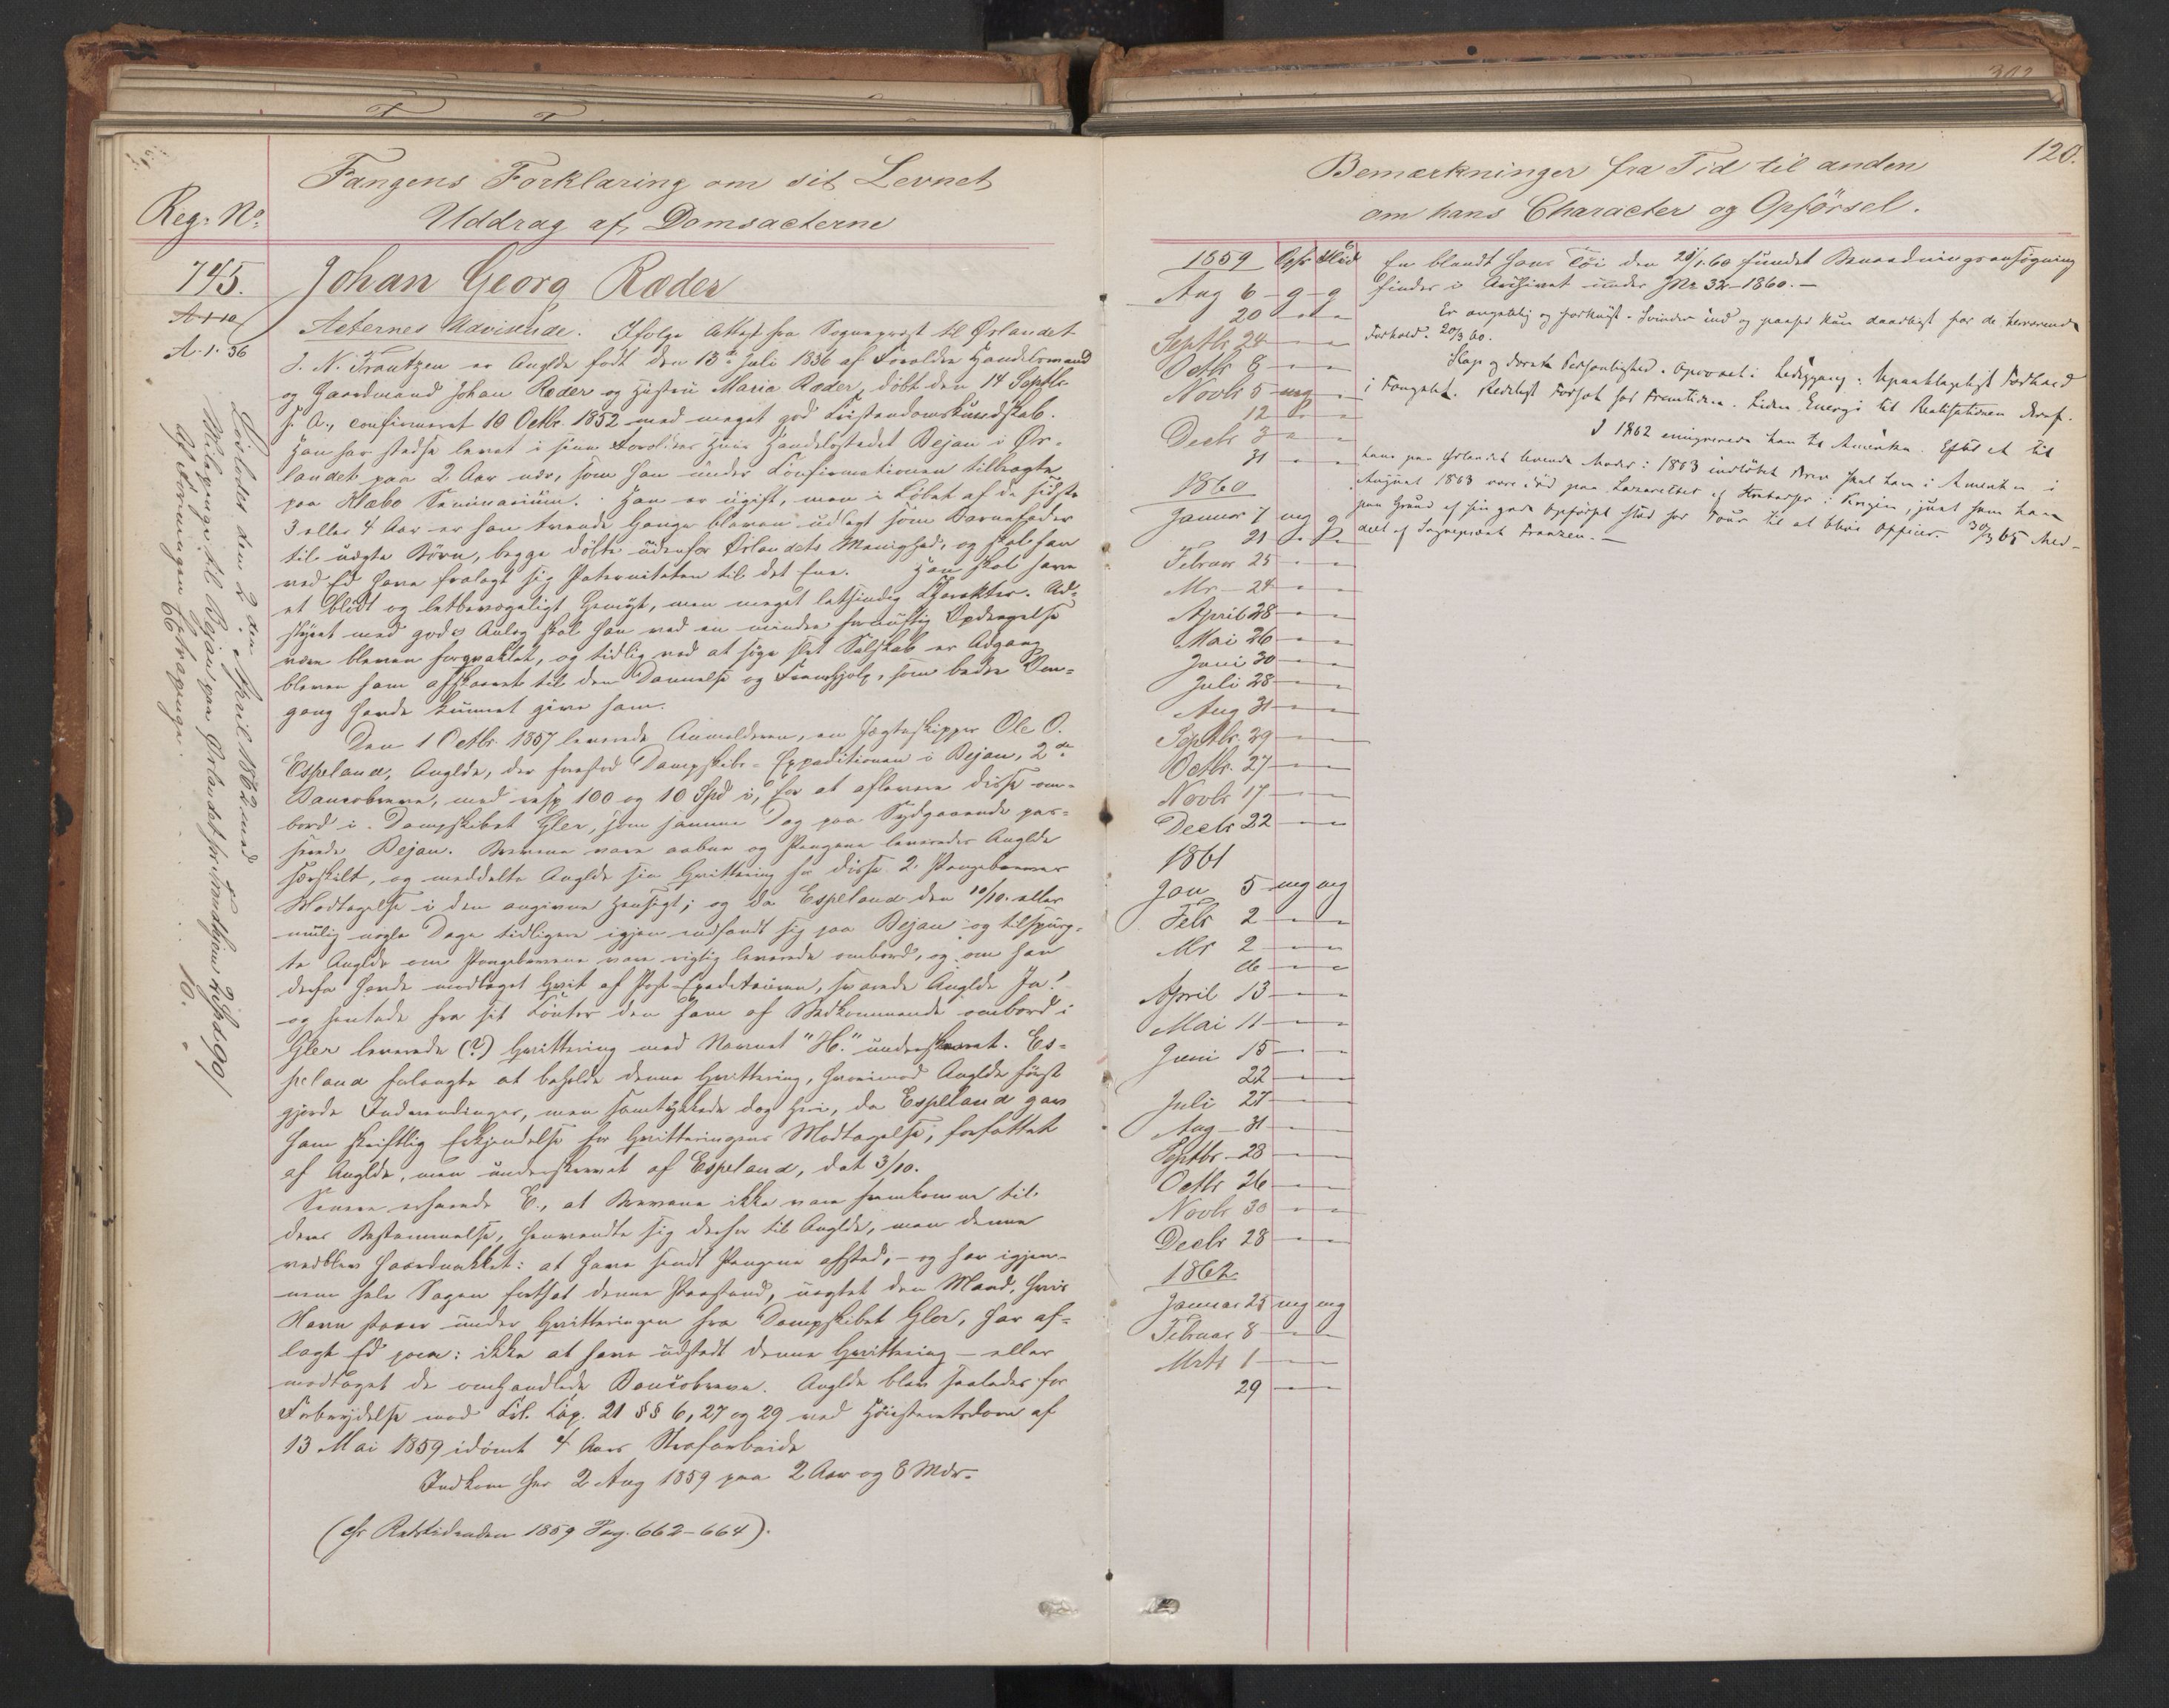 Fangens Forklaring om sit Levnet
Uddrag af Domsacterne
Reg: No.
745.
A. 1. 36
Johan Georg Ræder
Acternes Udvisende. Ifølge Attest fra Sogneprest til Ørlandet
J. N. Frantzen er Anglde født den 13de Juli 1836 af Forældre Handelsmand
og Gaardmand Johan Ræder og Hustru Maria Ræder, döbt den 14 Septbr
s. A., confirmeret 10 Octbr. 1852 med meget god Cristendomskundskab.
Han har stedse levet i sine Forældres Huus Handelsstedet Bejan i Ør-
landet paa 2 Aar nær, som han under Confirmationen tilbragte
paa Klæbo Seminarium. Han er ugift, men i Löbet af de sidste
3 eller 4 Aar er han tvende Gange bleven udlagt som Barnefader
til uægte Börn, begge döbte udenfor Ørlandets Menighed, og skal han
ved Ed have fralagt sig Paterniteten til det Ene. Han skal have
et blödt og letbevægeligt Gemyt, men meget letsindig Charakter. Ud-
styret med gode Anlæg skal han ved en mindre fornuftig Opdragelse
være bleven forqvaklet, og tidlig ved at söge slet Selskab er Adgang
bleven ham afskaaret til den Dannelse og Fremhjelp, som bedre Om-
gang havde kunnet give ham.
Den 1 Octbr. 1857 leverede Anmelderen, en Jægteskipper Ole O.
Espeland, Anglde, der forestod Dampskibs-Expeditionen i Bejan, 2de
Bancobreve, med resp 100 og 10 Spd i, for at aflevere disse om-
bord i Dampskibet Gler, som samme Dag paa Sydgaaende pas-
serede Bejan. Brevene vare aabne og Pengene leveredes Anglde
særskilt, og meddelte Anglde sin Qvittering for disse 2 Pengebreves
Modtagelse i den angivne Hensigt; og da Espeland den 10/10. eller
mulig nogle Dage tidligere igjen indfandt sig paa Bejan og tilspurg-
te Anglde om Pengebrevene vare rigtig leverede ombord, og om han
derfor havde modtaget Qvit af Post-Expediteuren, svarede Anglde Ja!
og hentede fra sit Contor den ham af Vedkommende ombord i
Gler leverede (?) Qvittering med Navnet "H." underskrevet. Es-
peland forlangte at beholde denne Qvittering, hvorimod Anglde först
gjorde Indvendinger, men samtykkede dog heri, da Espeland gav
ham skriftlig Erkjendelse for Qvitteringens Modtagelse, forfattet
af Anglde, men underskrevet af Espeland, dat 3/10.
Senere erfarede E., at Brevene ikke vare fremkomne til
deres Bestemmelse, henvendte sig derfor til Anglde, men denne
vedblev haardnakket: at have sendt Pengene afsted, - og har igjen-
nem hele Sagen fortsat denne Paastand, uagtet den Mand, hvis
Navn staaer under Qvitteringen fra Dampskibet Gler, har af-
lagt Ed paa: ikke at have udstedt denne Qvittering - eller
modtaget de omhandlede Bancobreve. Anglde blev saaledes for
Forbrydelse mod Crl. Cap. 21 §§ 6, 27 og 29 ved Höiesteretsdom af
13 Mai 1859 idömt 4 Aars Strafarbeide
Indkom her 2 Aug 1859 paa 2 Aar og 8 Mdr.
(cfr Retstidenden 1859 Pag. 662-664).
Lösladt den 2 den April 1862 med
Reisepenge til Bejan paa Ørlandet
Bemærkninger fra Tid til anden
om hans Character og Opförsel.
120.
1859 Opfr Flid
Aug 6 - g - g
20
Septbr 24
Octbr 8
Novbr 5 - mg
12
Decbr 3
31
1860
Januar 7 mg g
21
Februar 25
Mr - 24
April 28
Mai 26
Juni 30
Juli 28
Aug 31
Septbr. 29
Octbr. 27
Novbr 17
Decbr 22
1861
Jan 5 mg mg
Febr 2
Mr 2
16
April 13
Mai 11
Juni 15
22
Juli 27
Aug - 31
Septbr - 28
Octbr 26
Novbr 30
Decbr 28
1862
Januar 25 mg mg
Februar 8
Mrts 1
29
En blandt hans Töi den 28/1.60 fundet Benaadningsansögning
findes i Archivet under Jnr 32-1860. -
Er angstelig og forknyt. Svinder ind og passer kun daarligt for de herværende
Forhold. 20/3 60.
Slap og doven Personlighed. Opvoxet i Lediggang. Upaaklageligt Forhold
i Fængslet. Redeligt Forsæt for Fremtiden. Liden Energi til Realisationen deraf.
I 1862 emigrerede han til Amerika. Efter et til
hans paa Ørlandet levende Moder i 1863 indlöbet Brev skal han i Amerika i
August 1863 være död paa Lazarethet af Strabadser i Krigen, just som han
paa Grund af sin gode Opförsel stod for Tour til at blive Officier. 30/3 65 Med-
delt af Sogneprest Franzen. -